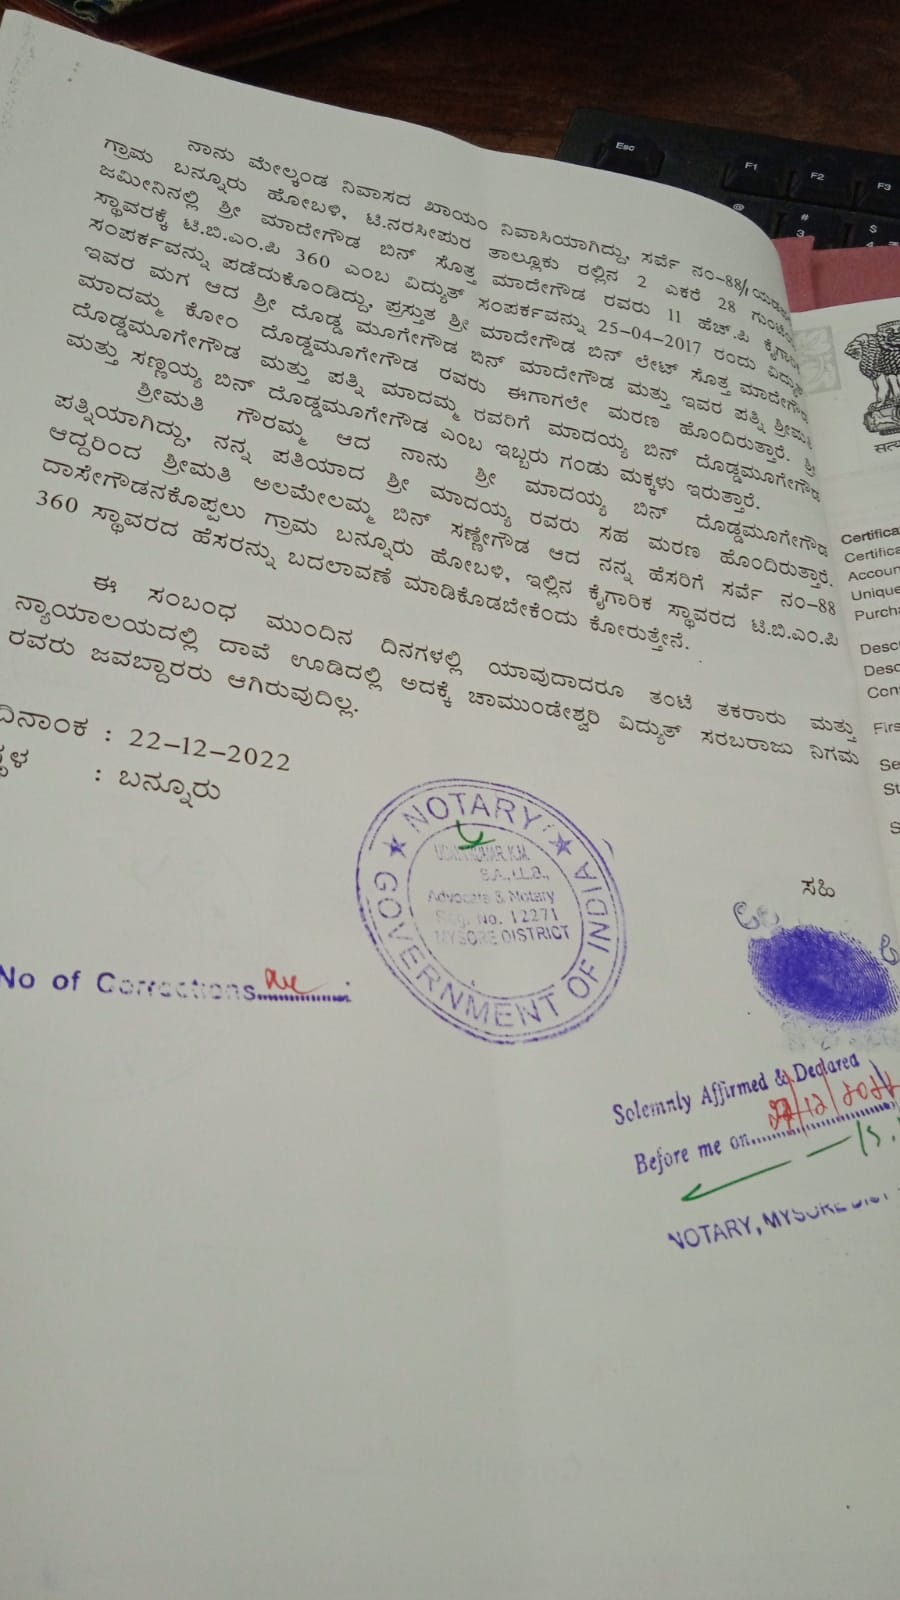 ನಾನು ಮೇಲ್ಕಂಡ ನಿವಾಸದ ಖಾಯಂ ನಿವಾಸಿಯಾಗಿದ್ದು, ಸರ್ವೆ ನಂ-88/1
ಗ್ರಾಮ ಬನ್ನೂರು ಹೋಬಳಿ, ಟಿ.ನರಸೀಪುರ ತಾಲ್ಲೂಕು ರಲ್ಲಿನ 2 ಎಕರೆ 28 ಗುಂಟೆ
ಜಮೀನಿನಲ್ಲಿ ಶ್ರೀ ಮಾದೇಗೌಡ ಬಿನ್ ಸೊತ್ತ ಮಾದೇಗೌಡ ರವರು 11 ಹೆಚ್.ಪಿ
ಸ್ಥಾವರಕ್ಕೆ ಟಿ.ಬಿ.ಎಂ.ಪಿ 360 ಎಂಬ ವಿದ್ಯುತ್ ಸಂಪರ್ಕವನ್ನು 25-04-2017 ರಂದು ವಿದ್ಯುತ್
ಸಂಪರ್ಕವನ್ನು ಪಡೆದುಕೊಂಡಿದ್ದು, ಪ್ರಸ್ತುತ ಶ್ರೀ ಮಾದೇಗೌಡ ಬಿನ್ ಲೇಟ್ ಸೊತ್ತ ಮಾದೇಗೌಡ
ಇವರ ಮಗ ಆದ ಶ್ರೀ ದೊಡ್ಡ ಮೂಗೇಗೌಡ ಬಿನ್ ಮಾದೇಗೌಡ ಮತ್ತು ಇವರ ಪತ್ನಿ
ಮಾದಮ್ಮ ಕೋಂ ದೊಡ್ಡಮೂಗೇಗೌಡ ರವರು ಈಗಾಗಲೇ ಮರಣ ಹೊಂದಿರುತ್ತಾರೆ. ಶ್ರೀ
ದೊಡ್ಡಮೂಗೇಗೌಡ ಮತ್ತು ಪತ್ನಿ ಮಾದಮ್ಮ ರವರಿಗೆ ಮಾದಯ್ಯ ಬಿನ್ ದೊಡ್ಡಮೂಗೇಗೌಡ
ಮತ್ತು ಸಣ್ಣಯ್ಯ ಬಿನ್ ದೊಡ್ಡಮೂಗೇಗೌಡ ಎಂಬ ಇಬ್ಬರು ಗಂಡು ಮಕ್ಕಳು ಇರುತ್ತಾರೆ.
ಶ್ರೀಮತಿ ಗೌರಮ್ಮ ಆದ ನಾನು ಶ್ರೀ ಮಾದಯ್ಯ ಬಿನ್ ದೊಡ್ಡಮೂಗೇಗೌಡ
ಪತ್ನಿಯಾಗಿದ್ದು, ನನ್ನ ಪತಿಯಾದ ಶ್ರೀ ಮಾದಯ್ಯ ರವರು ಸಹ ಮರಣ ಹೊಂದಿರುತ್ತಾರೆ.
ಆದ್ದರಿಂದ ಶ್ರೀಮತಿ ಅಲಮೇಲಮ್ಮ ಬಿನ್ ಸಣ್ಣೇಗೌಡ ಆದ ನನ್ನ ಹೆಸರಿಗೆ ಸರ್ವೆ ನಂ-88
ದಾಸೇಗೌಡನಕೊಪ್ಪಲು ಗ್ರಾಮ ಬನ್ನೂರು ಹೋಬಳಿ, ಇಲ್ಲಿನ ಕೈಗಾರಿಕ ಸ್ಥಾವರದ ಟಿ.ಬಿ.ಎಂ.ಪಿ
360 ಸ್ಥಾವರದ ಹೆಸರನ್ನು ಬದಲಾವಣೆ ಮಾಡಿಕೊಡಬೇಕೆಂದು ಕೋರುತ್ತೇನೆ.
ಈ ಸಂಬಂಧ ಮುಂದಿನ ದಿನಗಳಲ್ಲಿ ಯಾವುದಾದರೂ ತಂಟೆ ತಕರಾರು ಮತ್ತು
ನ್ಯಾಯಾಲಯದಲ್ಲಿ ದಾವೆ ಊಡಿದಲ್ಲಿ ಅದಕ್ಕೆ ಚಾಮುಂಡೇಶ್ವರಿ ವಿದ್ಯುತ್ ಸರಬರಾಜು ನಿಗಮ
ರವರು ಜವಬ್ದಾರರು ಆಗಿರುವುದಿಲ್ಲ.
ದಿನಾಂಕ : 22-12-2022
: ಬನ್ನೂರು
NOTARY
GOVERNMENT OF INDIA
B.A., LL.B.,
Advocate & Notary
Reg. No. 12271
MYSORE DISTRICT
ಸಹಿ
No of Corrections
Solemnly Affirmed & Declared
Before me on
NOTARY, MYSORE DIST
Esc
F1
F2
F3
@
#
3
$
4
Certifica
Certifica
Accoun
Unique
Purcha
Desc
Desc
Con
Firs
Se
St
S